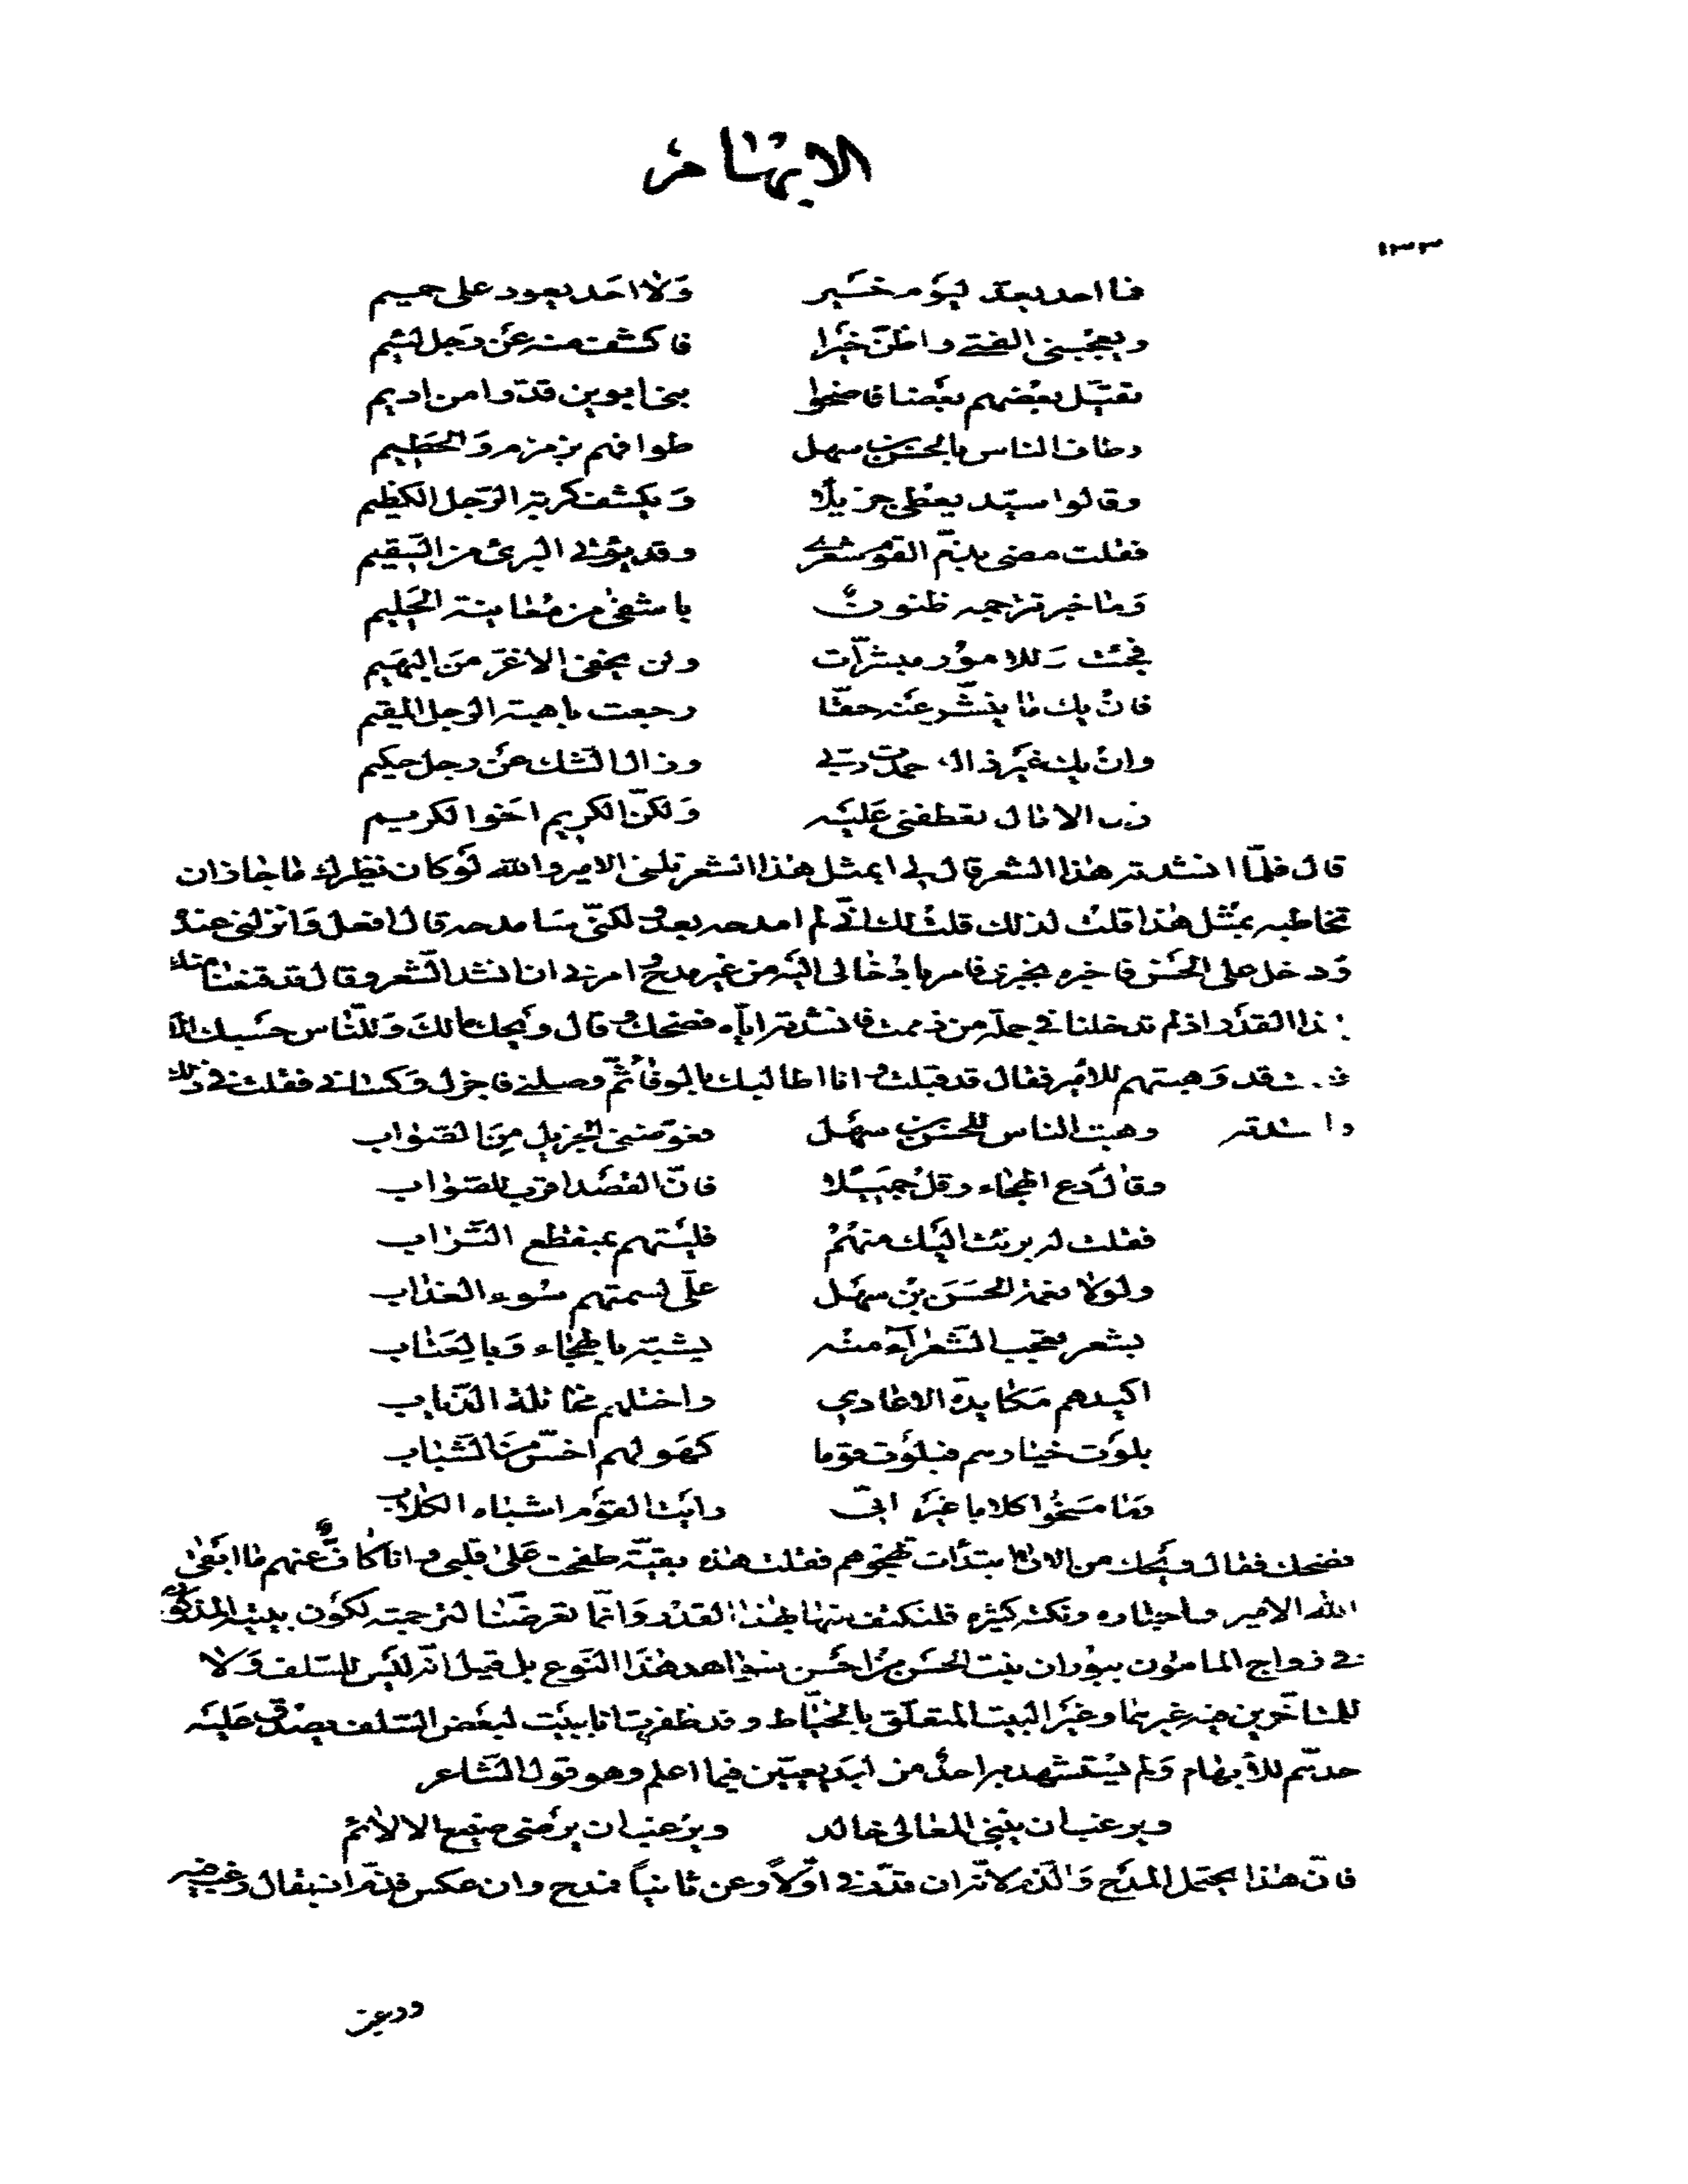 الابهام
١٣٣
فما احد يعدّ ليوم خير ولا احد يعود على حميم
ويعجبني الفتى واظنّ خيرا فاكشف منه عن رجل لئيم
تقيّل بعضهم بعضا فاضحوا بنى ابوين قدّوا من اديم
وطاف الناس بالحسن بن سهل طوافهم بزمزم والحطيم
وقالوا سيّد يعطى جزيلا ويكشف كربة الرّجل الكظيم
فقلت مضى بذمّ القوم شعري وقد يؤتى البرئ من السّقيم
وما خبر ترجمه ظنون باشفى من معاينة الحليم
فجئت وللامور مبشّرات ولن يخفى الاغرّ من البهيم
فان يك ما ينشّر عنه حقّا رجعت باهبة الرجل المقيم
وان يك غير ذاك حمدت ربّي وزال الشّك عن رجل حكيم
الامال تعطفني عليه ولكنّ الكريم اخو الكريم
قال فلمّا انشدته هذا الشعر قال لي ابمثل هذا الشعر تلقى الامير والله لو كان نظيرك ما جاز ان
تخاطبه بمثل هذا قلت لذلك قلت لك انّي لم امدحه بعد ولكنّي سامدحه قال افعل وانزلني عنده
ودخل على الحسن فاخبره بخبرى فامر بادخالى اليه من غير مدح امرنى ان انشد الشّعر وقال قد قنعنا منك
بهذا القدر اذ لم تدخلنا في جملة من ذممت فانشدته اياه فضحك وقال ويحك مالك وللنّاس حسبك الان
فقد وهبتهم للامير فقال قد قبلت وانا اطالبك بالوفا ثمّ وصلني فاجزل وكساني فقلت في ذلك
وانشدته وهبت الناس للحسن بن سهل فعوّضني الجزيل من الثواب
وقال دع الهجاء وقل جميلا فانّ القصد اقرب للصّواب
فقلت له برئت اليك منهم فليتهم بمنقطع التّراب
ولولا نعمة الحسن بن سهل علىّ لسمتهم سوء العذاب
بشعر يعجب الشّعراء منه يشبّه بالهجاء وبالعتاب
اكيدهم مكايدة الاعادي واختلهم مخاتلة الذّياب
بلوت خيارهم فبلوت قوما كهولهم اخسّ من الشّباب
وما مسخوا كلابا غير انّي رايت القوم اشباه الكلاب
فضحك فقال ويحك من الان ابتدأت تهجوهم فقلت هذه بقيّة طفحت على قلبي وانا كافّ عنهم ما ابقى
الله الامير واخباره ونكته كثيره فلنكتف منها بهذا القدر وانّما تعرضّنا لترجمته لكون بيتيه المذكورين
في زواج المامون ببوران بنت الحسن من احسن شواهد هذا النّوع بل قيل انّه ليس للسّلف ولا
للمتاخّرين فيه غيرهما وغير البيت المتعلّق بالخيّاط وقد ظفرت انا ببيت لبعض السّلف يصدق عليه
حدّهم للابهام ولم يستشهد به احد من البديعيّين فيما اعلم وهو قول الشّاعر
ويرغب ان يبنى المعالى خالد ويرغب ان يرضى صنيع الالائم
فانّ هذا يحتمل المدح والذّم لانّه ان قدّر في اوّلاً وعن ثانياً مدح وان عكس فذمّ اذ يقال رغب فيه
ورعب